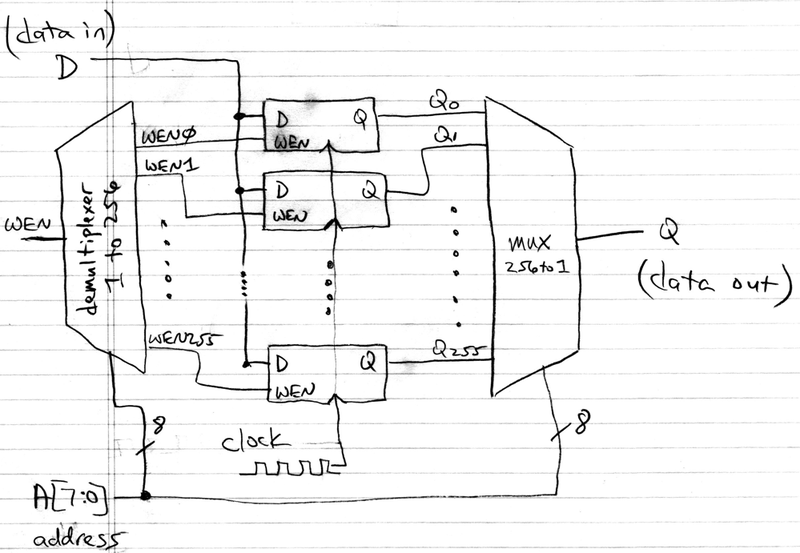 (data in)
D
D Q
WEN
Q0
WEN0
Q1
WEN1
D Q
WEN
WEN
demultiplexer
1 to 256
mux
256 to 1
Q
(data out)
WEN255
D Q
WEN
Q255
clock
8
8
A[7:0]
address